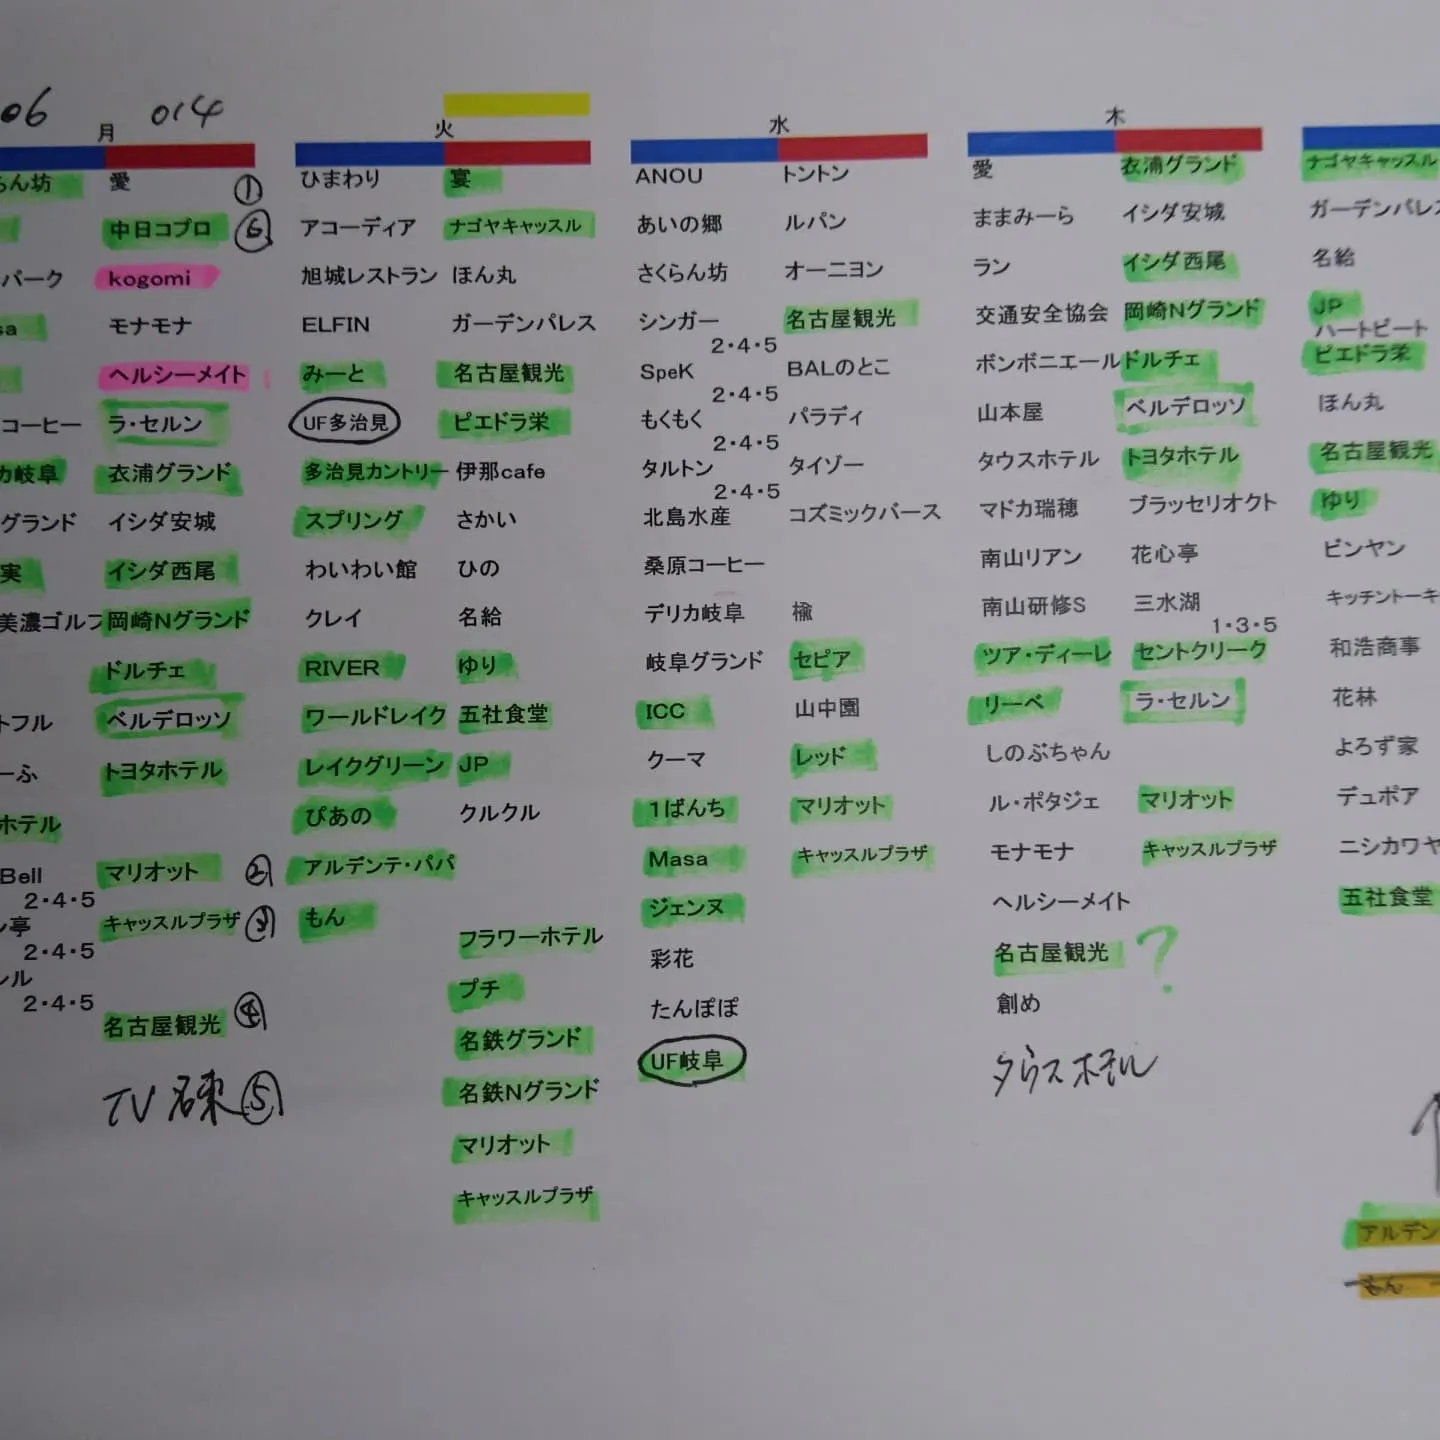 06 014
月
らん坊
パーク
sa
コーヒー
カ岐阜
グランド
実
美濃ゴルフ
トフル
ーふ
ホテル
Bell
2・4・5
ン亭
2・4・5
ル
2・4・5
愛 ①
中日コプロ ⑥
kogomi
モナモナ
ヘルシーメイト
ラ・セルン
衣浦グランド
イシダ安城
イシダ西尾
岡崎Nグランド
ドルチェ
ベルデロッソ
トヨタホテル
マリオット ②
キャッスルプラザ ③
名古屋観光 ④
TV 名東 ⑤
火
ひまわり
アコーディア
旭城レストラン
ELFIN
みーと
UF多治見
多治見カントリー
スプリング
わいわい館
クレイ
RIVER
ワールドレイク
レイクグリーン
ぴあの
アルデンテ・パパ
もん
宴
ナゴヤキャッスル
ほん丸
ガーデンパレス
名古屋観光
ピエドラ栄
伊那cafe
さかい
ひの
名給
ゆり
五社食堂
JP
クルクル
フラワーホテル
プチ
名鉄グランド
名鉄Nグランド
マリオット
キャッスルプラザ
水
ANOU
あいの郷
さくらん坊
シンガー
2・4・5
SpeK
2・4・5
もくもく
2・4・5
タルトン
2・4・5
北島水産
桑原コーヒー
デリカ岐阜
岐阜グランド
ICC
クーマ
1ばんち
Masa
ジェンヌ
彩花
たんぽぽ
UF岐阜
トントン
ルパン
オーニヨン
名古屋観光
BALのとこ
パラディ
タイゾー
コズミックバース
楡
セピア
山中園
レッド
マリオット
キャッスルプラザ
木
愛
ままみーら
ラン
交通安全協会
ボンボニエール
山本屋
タウスホテル
マドカ瑞穂
南山リアン
南山研修S
ツア・ディーレ
リーベ
しのぶちゃん
ル・ポタジェ
モナモナ
ヘルシーメイト
名古屋観光 ?
創め
タウスホテル
衣浦グランド
イシダ安城
イシダ西尾
岡崎Nグランド
ドルチェ
ベルデロッソ
トヨタホテル
ブラッセリオクト
花心亭
三水湖
1・3・5
セントクリーク
ラ・セルン
マリオット
キャッスルプラザ
ナゴヤキャッスル
ガーデンパレス
名給
JP
ハートビート
ピエドラ栄
ほん丸
名古屋観光
ゆり
ビンヤン
キッチントーキ
和浩商事
花林
よろず家
デュポア
ニシカワヤ
五社食堂
アルデン
もん